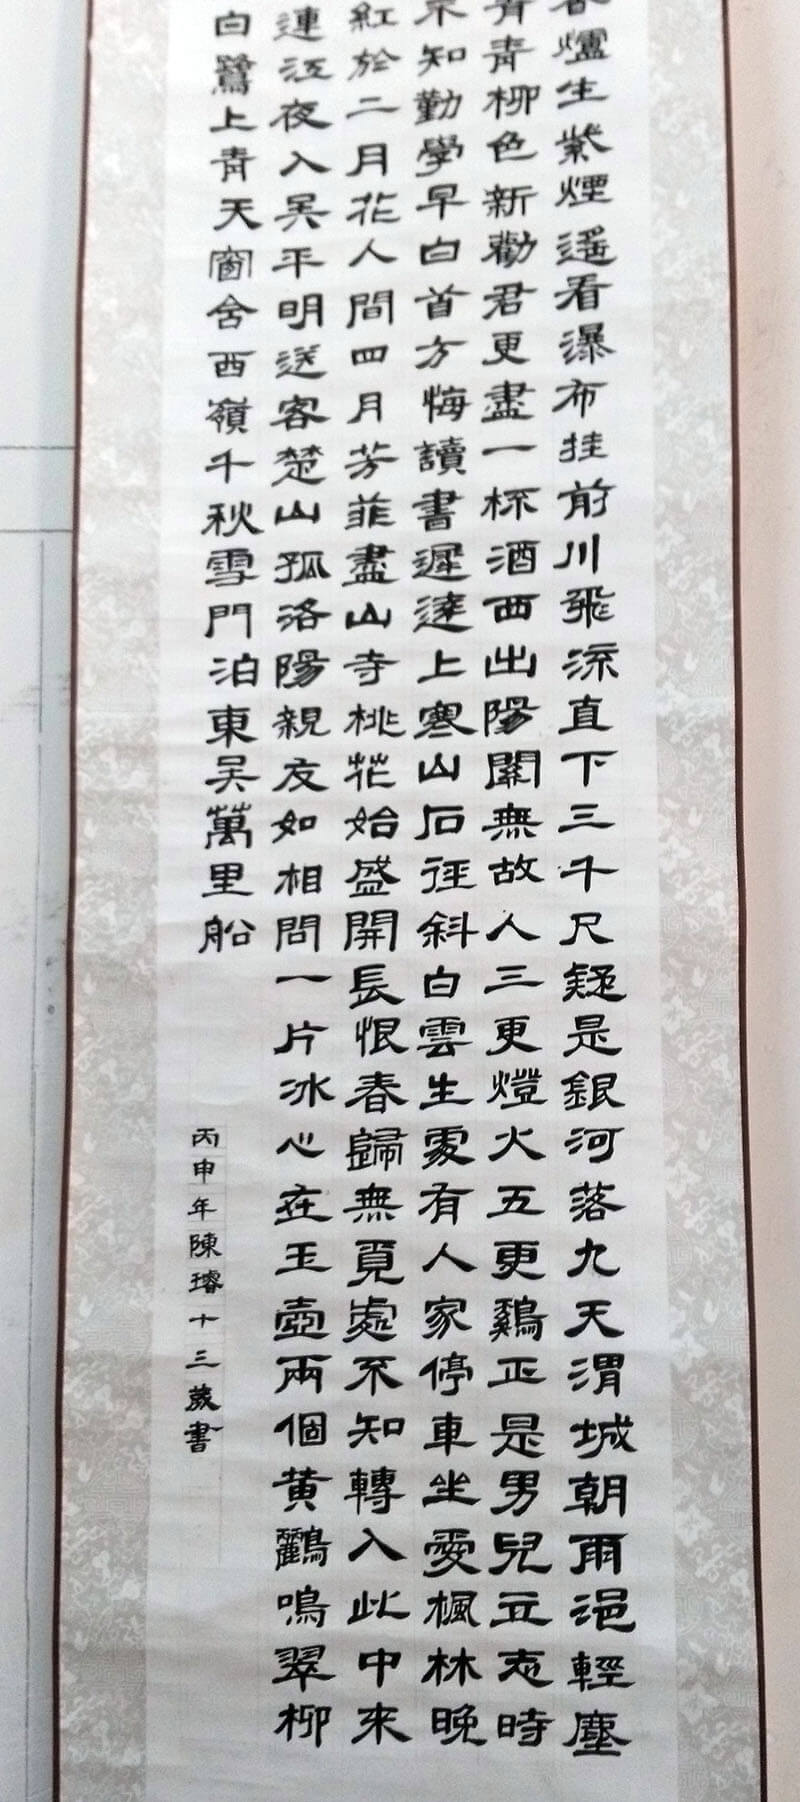 香爐生紫煙遙看瀑布挂前川飛流直下三千尺疑是銀河落九天渭城朝雨浥輕塵
青青柳色新勸君更盡一杯酒西出陽關無故人三更燈火五更鷄正是男兒立志時
不知勤學早白首方悔讀書遲遠上寒山石徑斜白雲生處有人家停車坐愛楓林晚
紅於二月花人間四月芳菲盡山寺桃花始盛開長恨春歸無覓處不知轉入此中來
連江夜入吳平明送客楚山孤洛陽親友如相問一片冰心在玉壺兩個黃鸝鳴翠柳
白鷺上青天窗含西嶺千秋雪門泊東吳萬里船
丙申年陳璿十三歲書